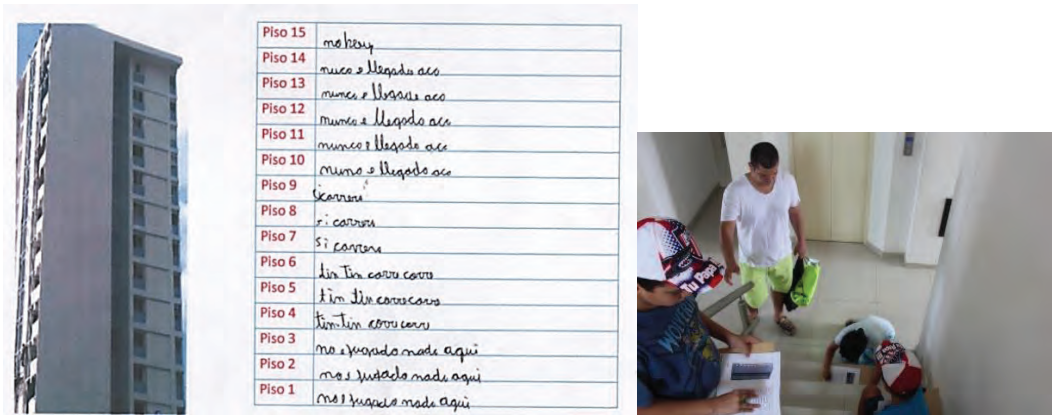 Piso 15 no hay
Piso 14 nuco e llegado aco
Piso 13 nunca e llegado aco
Piso 12 nunca e llegado aca
Piso 11 nunca e llegado aca
Piso 10 nuno e llegado aco
Piso 9
Piso 8 si carrera
Piso 7 si carrera
Piso 6 tin Tin corre corre
Piso 5 tin tin corre corre
Piso 4 tin tin corre corre
Piso 3 no e jugado nada aqui
Piso 2 no e jugado nada aqui
Piso 1 no e jugado nada aqui
Tu Papi